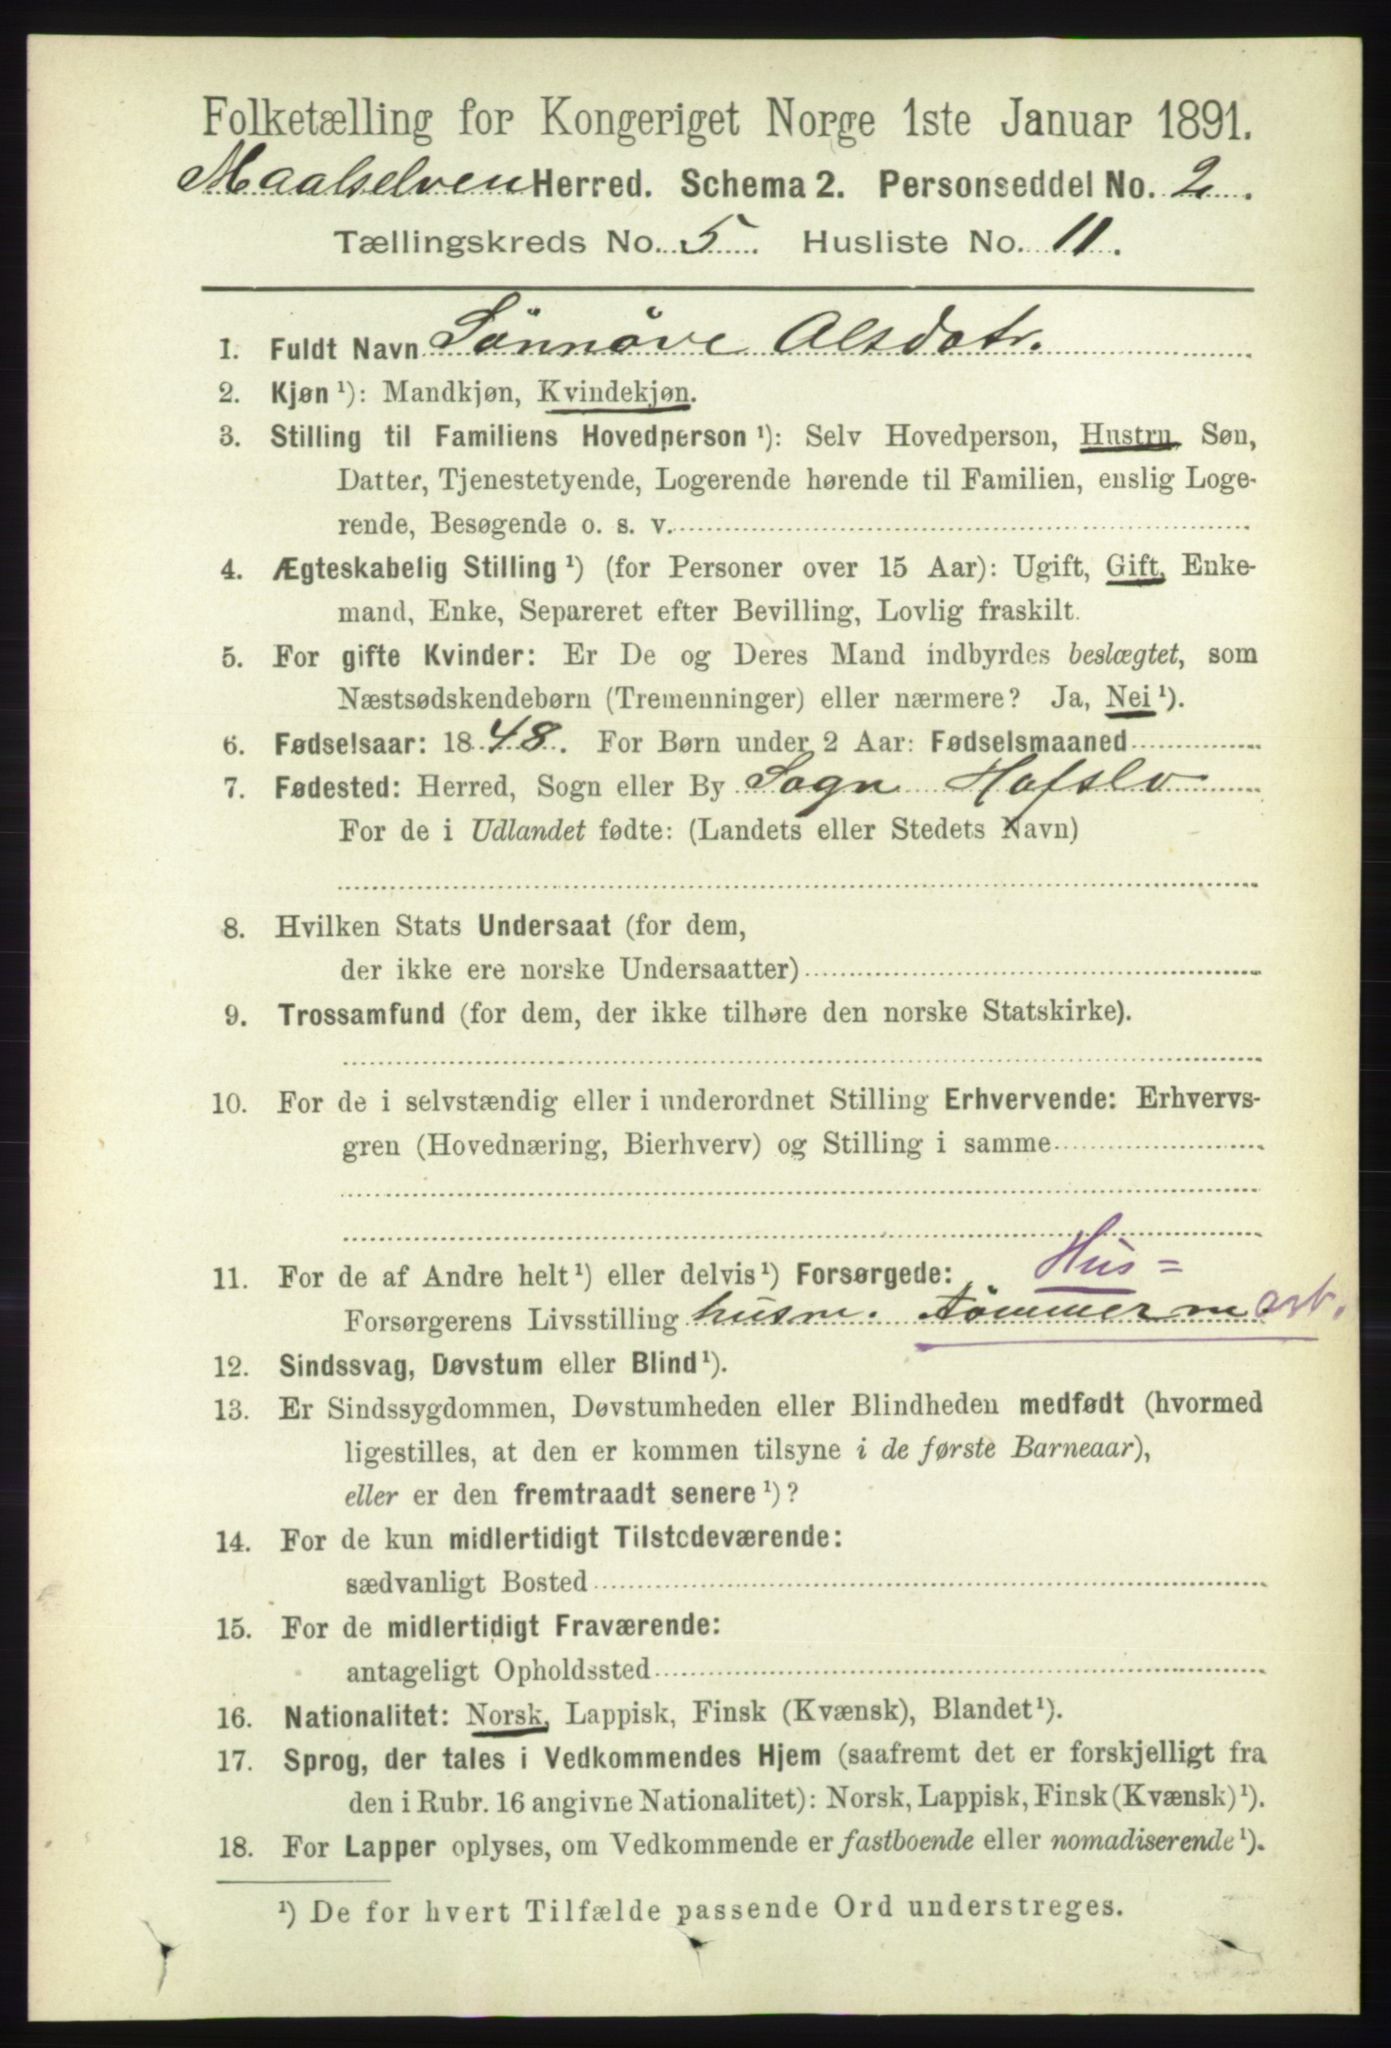 Folketælling for Kongeriget Norge 1ste Januar 1891.
Maalselven Herred. Schema 2. Personseddel No. 2.
Tællingskreds No. 5. Husliste No. 11.
1. Fuldt Navn Sønnøve Alsdatr.
2. Kjøn ¹): Mandkjøn, Kvindekjøn.
3. Stilling til Familiens Hovedperson ¹): Selv Hovedperson, Hustru, Søn,
Datter, Tjenestetyende, Logerende hørende til Familien, enslig Loge-
rende, Besøgende o. s. v.
4. Ægteskabelig Stilling ¹) (for Personer over 15 Aar): Ugift, Gift, Enke-
mand, Enke, Separeret efter Bevilling, Lovlig fraskilt.
5. For gifte Kvinder: Er De og Deres Mand indbyrdes beslægtet, som
Næstsødskendebørn (Tremenninger) eller nærmere? Ja, Nei ¹).
6. Fødselsaar: 1848. For Børn under 2 Aar: Fødselsmaaned
7. Fødested: Herred, Sogn eller By Sogn Hafslo
For de i Udlandet fødte: (Landets eller Stedets Navn)
8. Hvilken Stats Undersaat (for dem,
der ikke ere norske Undersaatter)
9. Trossamfund (for dem, der ikke tilhøre den norske Statskirke).
10. For de i selvstændig eller i underordnet Stilling Erhvervende: Erhvervs-
gren (Hovednæring, Bierhverv) og Stilling i samme
11. For de af Andre helt ¹) eller delvis ¹) Forsørgede: Hus=
Forsørgerens Livsstilling husm. tømmerm arb.
12. Sindssvag, Døvstum eller Blind ¹).
13. Er Sindssygdommen, Døvstumheden eller Blindheden medfødt (hvormed
ligestilles, at den er kommen tilsyne i de første Barneaar),
eller er den fremtraadt senere ¹)?
14. For de kun midlertidigt Tilstedeværende:
sædvanligt Bosted
15. For de midlertidigt Fraværende:
antageligt Opholdssted
16. Nationalitet: Norsk, Lappisk, Finsk (Kvænsk), Blandet ¹).
17. Sprog, der tales i Vedkommendes Hjem (saafremt det er forskjelligt fra
den i Rubr. 16 angivne Nationalitet): Norsk, Lappisk, Finsk (Kvænsk) ¹).
18. For Lapper oplyses, om Vedkommende er fastboende eller nomadiserende ¹).
¹) De for hvert Tilfælde passende Ord understreges.